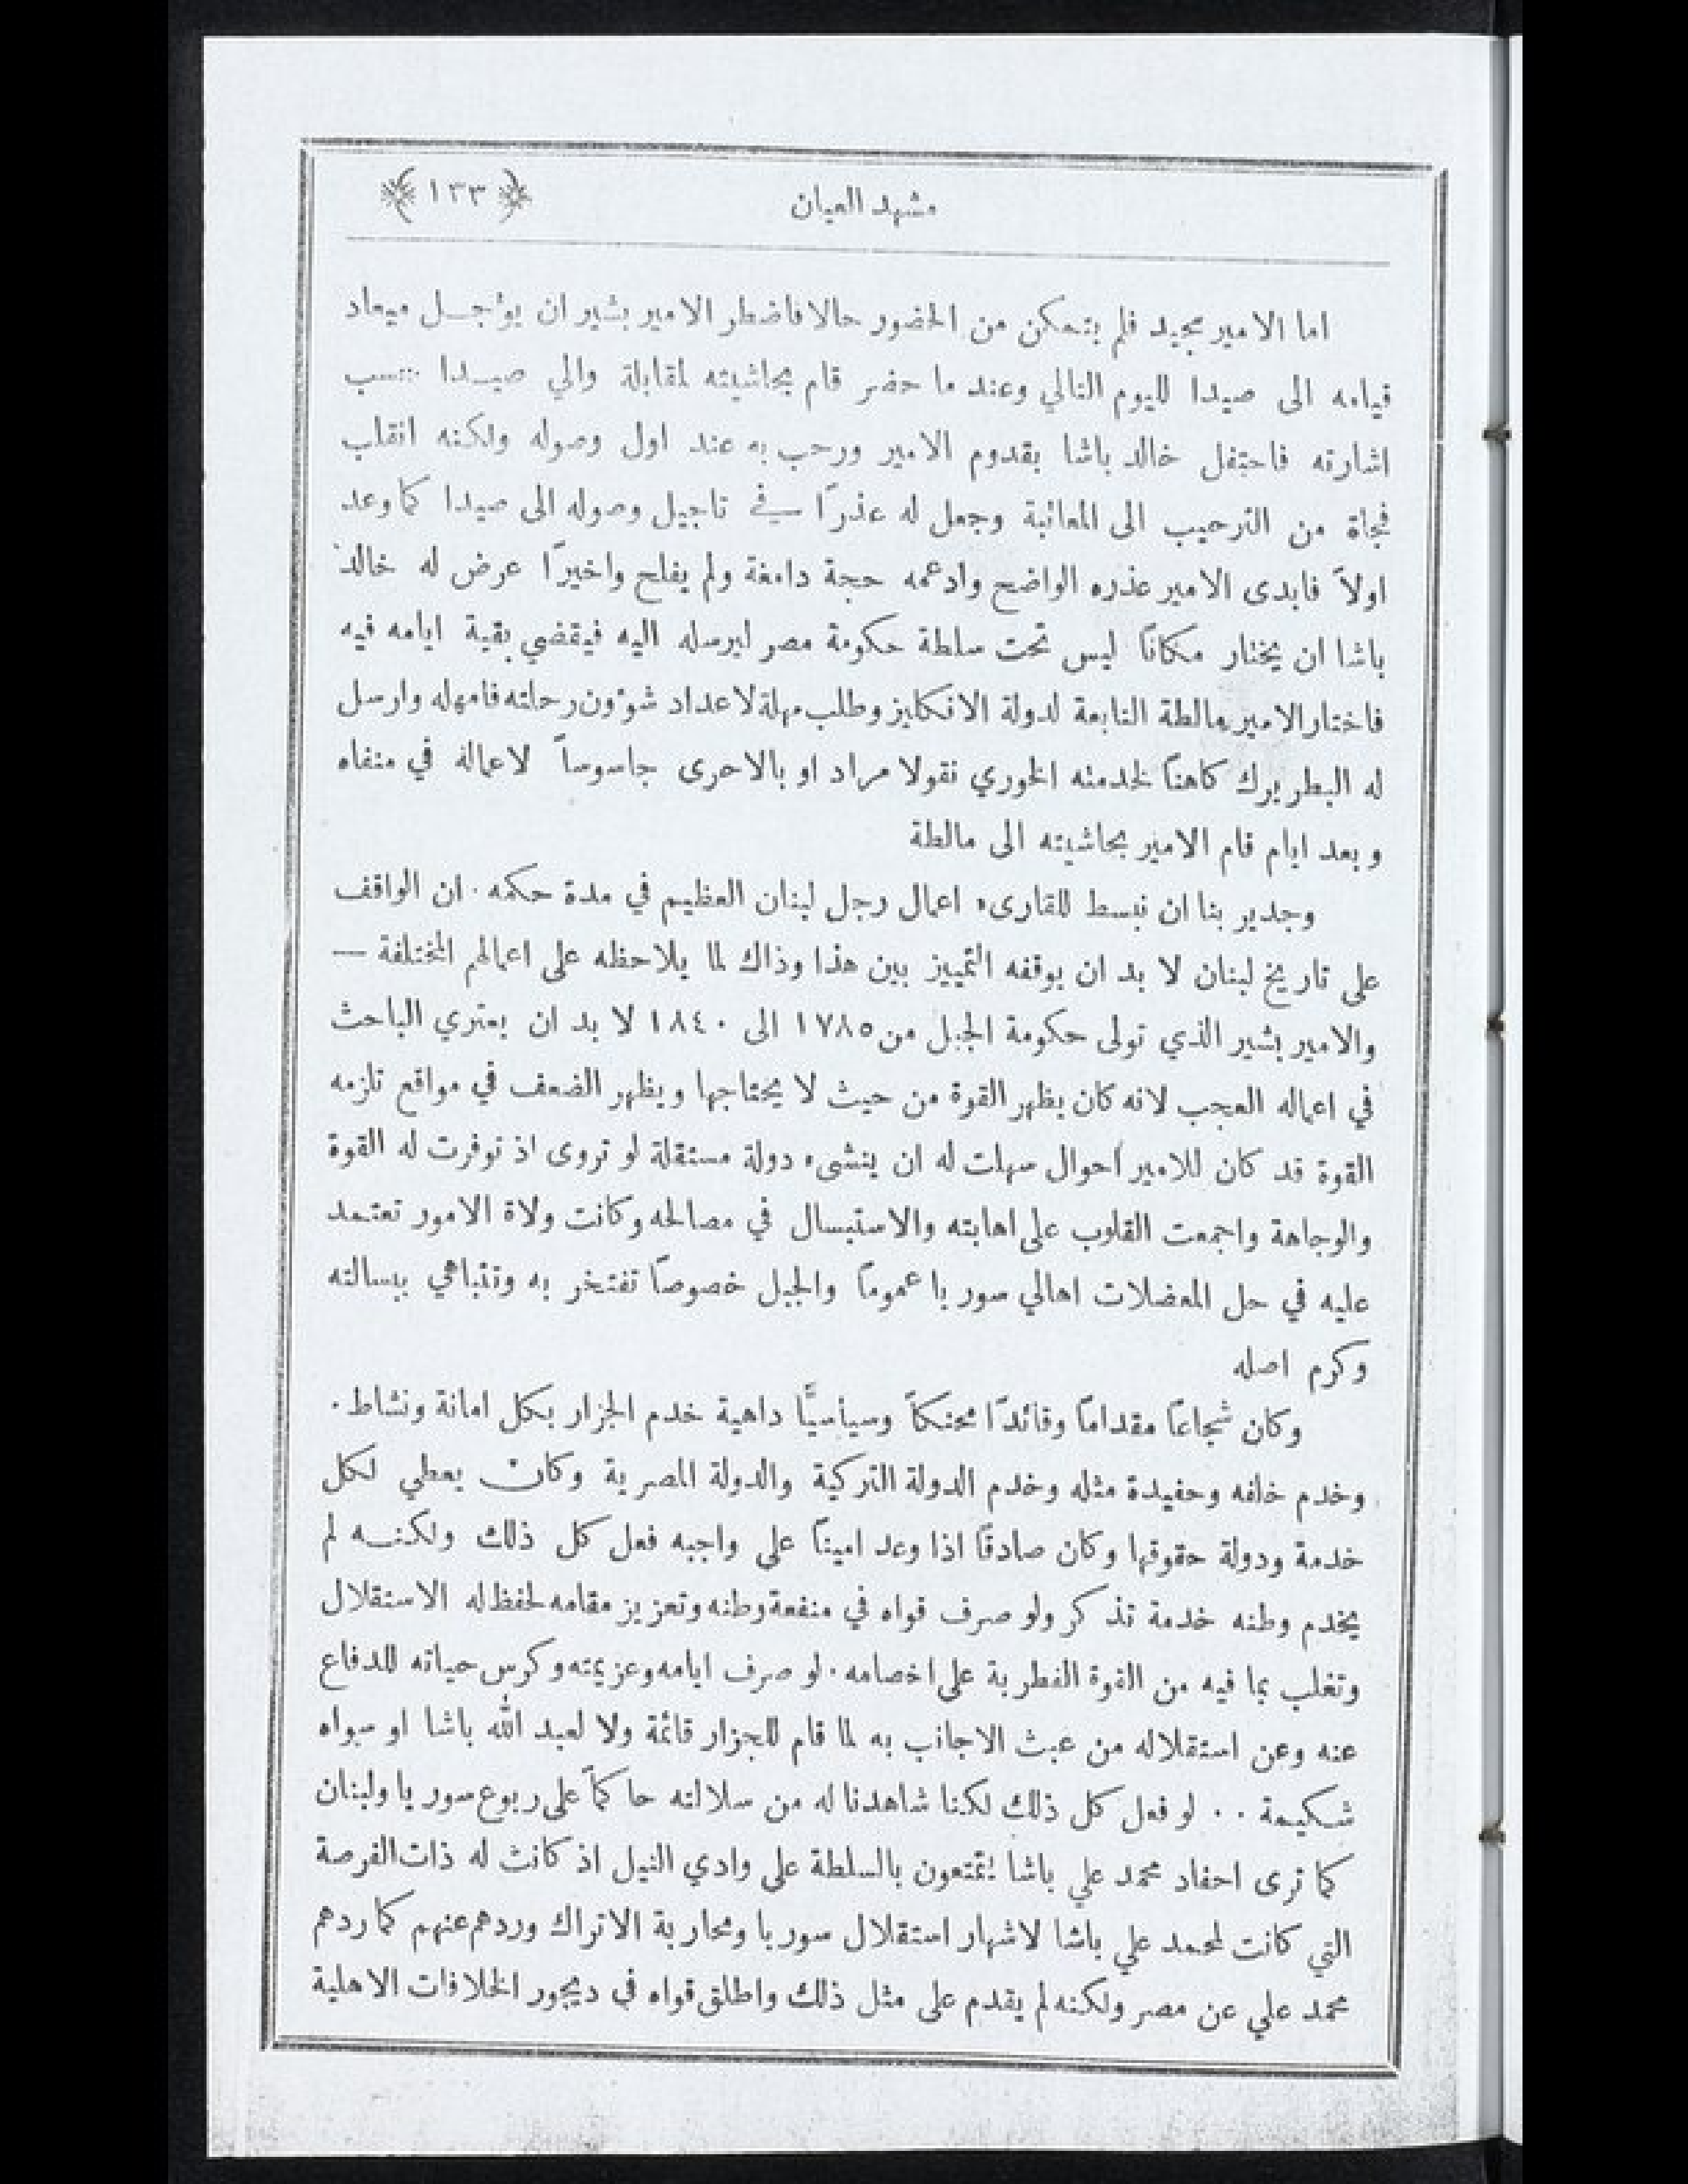 مشهد العيان ﴿ ١٣٣ ﴾
اما الامير مجيد فلم يتمكن من الحضور حالا فاضطر الامير بشير ان يؤجل ميعاد
قيامه الى صيدا لليوم التالي وعند ما حضر قام بحاشيته لمقابلة والي صيدا حسب
اشارته فاحتفل خالد باشا بقدوم الامير ورحب به عند اول وصوله ولكنه انقلب
فجاة من الترحيب الى المعاتبة وجعل له عذرًا في تاجيل وصوله الى صيدا كما وعد
اولاً فابدى الامير عذره الواضح وادعمه حجة دامغة ولم يفلح واخيرًا عرض له خالد
باشا ان يختار مكانًا ليس تحت سلطة حكومة مصر ليرسله اليه فيقضي بقية ايامه فيه
فاختار الامير مالطة التابعة لدولة الانكليز وطلب مهلة لاعداد شؤون رحلته فامهله وارسل
له البطريرك كاهنًا لخدمته الخوري نقولا مراد او بالاحرى جاسوساً لاعماله في منفاه
وبعد ايام قام الامير بحاشيته الى مالطة
وجدير بنا ان نبسط للقارىء اعمال رجل لبنان العظيم في مدة حكمه . ان الواقف
على تاريخ لبنان لا بد ان يوقفه التمييز بين هذا وذاك لما يلاحظه على اعمالهم المختلفة —
والامير بشير الذي تولى حكومة الجبل من ١٧٨٥ الى ١٨٤٠ لا بد ان يعتري الباحث
في اعماله العجب لانه كان يظهر القوة من حيث لا يحتاجها ويظهر الضعف في مواقع تلزمه
القوة قد كان للامير احوال سهلت له ان ينشىء دولة مستقلة لو تروى اذ توفرت له القوة
والوجاهة واجمعت القلوب على اهابته والاستبسال في مصالحه وكانت ولاة الامور تعتمد
عليه في حل المعضلات اهالي سوريا عمومًا والجبل خصوصًا تفتخر به وتتباهي ببسالته
وكرم اصله
وكان شجاعًا مقدامًا وقائدًا محنكاً وسياسيًّا داهية خدم الجزار بكل امانة ونشاط .
وخدم خلفه وحفيدة مثله وخدم الدولة التركية والدولة المصرية وكان يعطي لكل
خدمة ودولة حقوقها وكان صادقًا اذا وعد امينًا على واجبه فعل كل ذلك ولكنه لم
يخدم وطنه خدمة تذكر ولو صرف قواه في منفعة وطنه وتعزيز مقامه لحفظ له الاستقلال
وتغلب بما فيه من القوة الفطرية على اخصامه . لو صرف ايامه وعزيمته وكرس حياته للدفاع
عنه وعن استقلاله من عبث الاجانب به لما قام للجزار قائمة ولا لعبد الله باشا او سواه
شكيمة . . لو فعل كل ذلك لكنا شاهدنا له من سلالته حاكماً على ربوع سوريا ولبنان
كما نرى احفاد محمد علي باشا يتمتعون بالسلطة على وادي النيل اذ كانت له ذات الفرصة
التي كانت لمحمد علي باشا لاشهار استقلال سوريا ومحاربة الاتراك وردهم عنهم كما ردهم
محمد علي عن مصر ولكنه لم يقدم على مثل ذلك واطلق قواه في ديجور الخلافات الاهلية